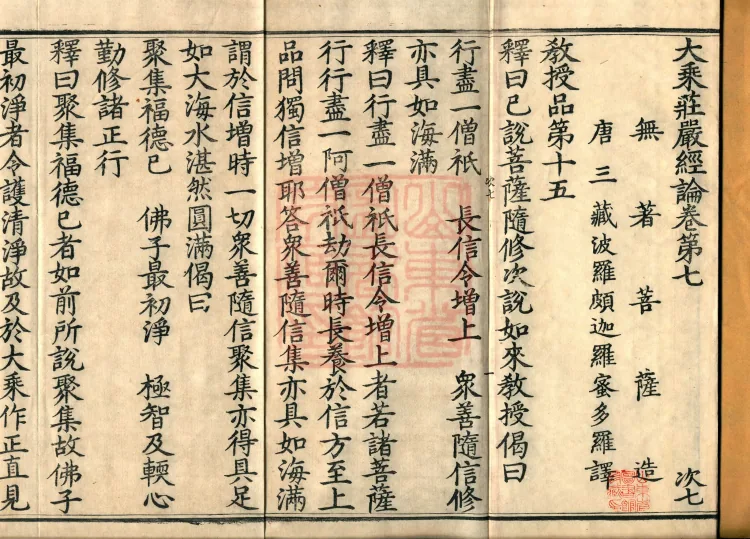 大乘莊嚴經論卷第七　次七
無著菩薩造
唐三藏波羅頗迦羅蜜多羅譯
教授品第十五
釋曰已說菩薩隨修次說如來教授偈曰
行盡一僧祇　長信令增上　衆善隨信修
亦具如海滿
釋曰行盡一僧祇長信令增上者若諸菩薩
行行盡一阿僧祇劫爾時長養於信方至上
品問獨信增耶答衆善隨信集亦具如海滿
謂於信增時一切衆善隨信聚集亦得具足
如大海水湛然圓滿偈曰
聚集福德已　佛子最初淨　極智及輭心
勤修諸正行
釋曰聚集福德已者如前所說聚集故佛子
最初淨者令護清淨故及於大乘作正直見
次七